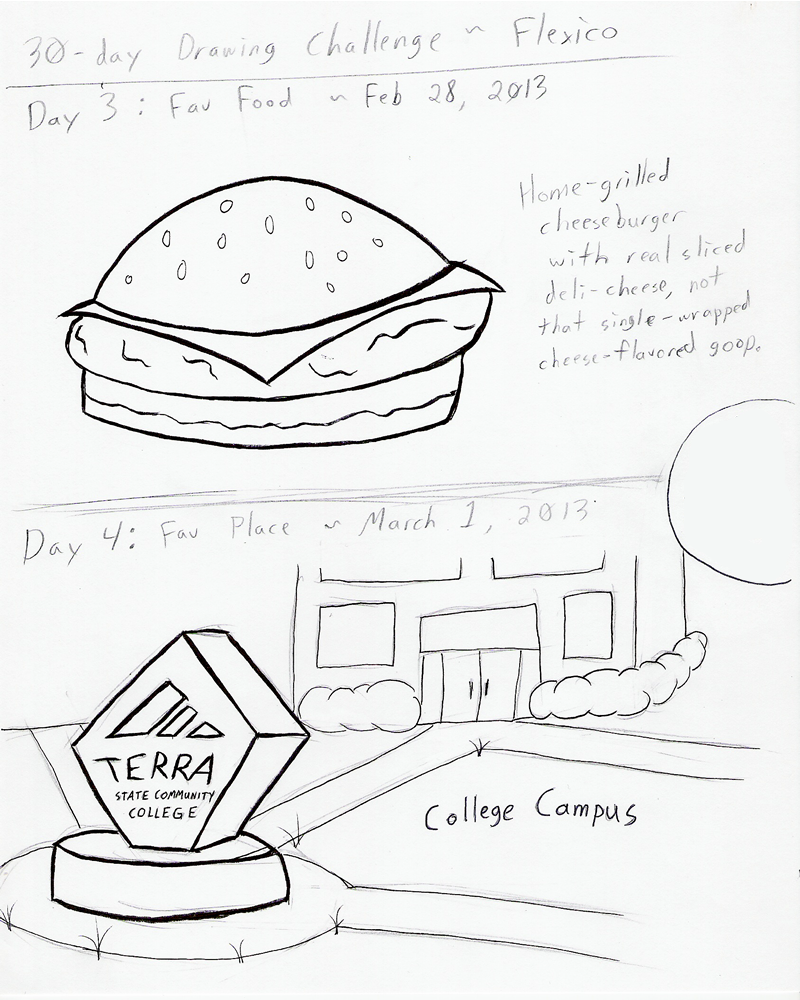 30-day Drawing Challenge ~ Flexico
Day 3: Fav Food ~ Feb 28, 2013
Home-grilled
cheeseburger
with real sliced
deli-cheese, not
that single-wrapped
cheese-flavored goop.
Day 4: Fav Place ~ March 1, 2013
TERRA
STATE COMMUNITY
COLLEGE
College Campus